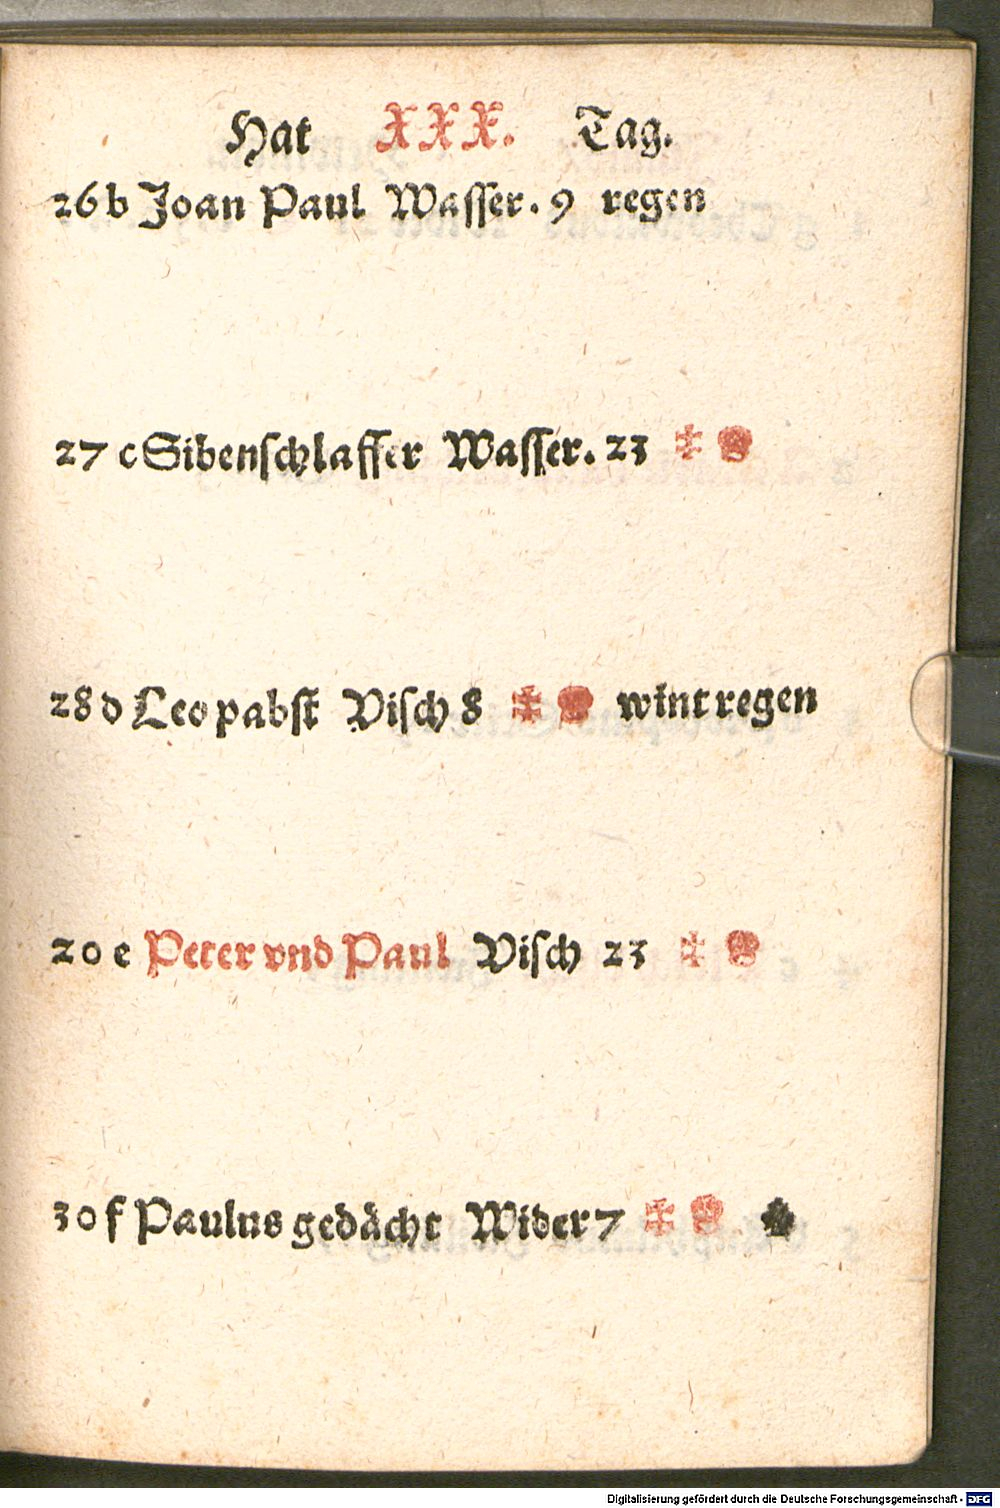 Hat XXX. Tag.
26 b Joan Paul Wasser. 9 regen
27 c Sibenschlaffer Wasser. 23
28 d Leo pabst Visch 8 wint regen
20 e Peter vnd Paul Visch 23
30 f Paulus gedächt Wider 7
Digitalisierung gefördert durch die Deutsche Forschungsgemeinschaft - DFG